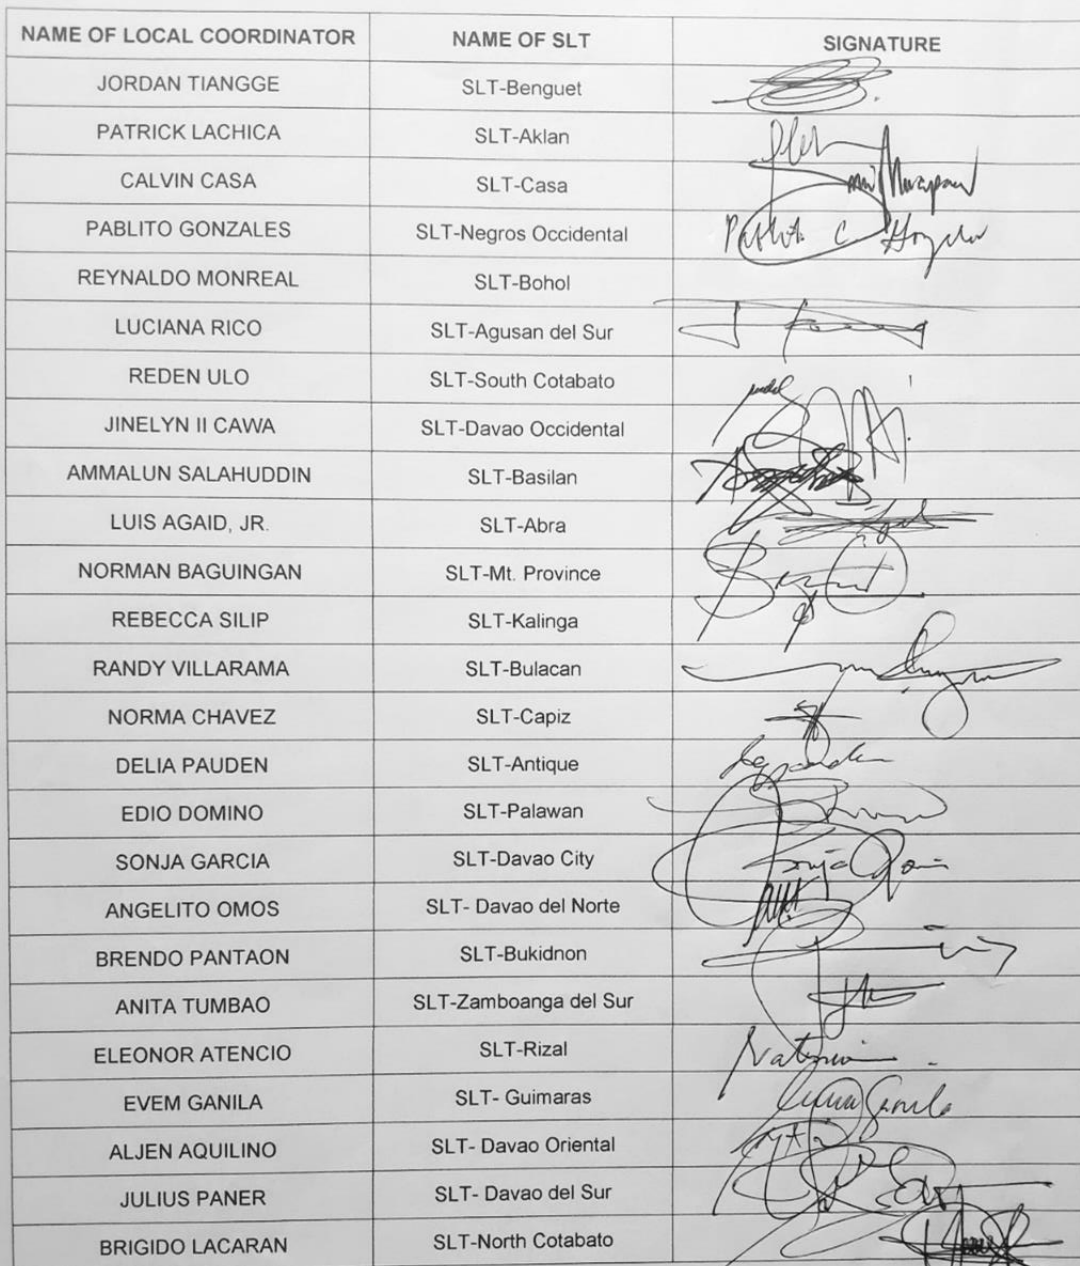 NAME OF LOCAL COORDINATOR NAME OF SLT SIGNATURE
JORDAN TIANGGE SLT-Benguet
PATRICK LACHICA SLT-Aklan
CALVIN CASA SLT-Casa
PABLITO GONZALES SLT-Negros Occidental
REYNALDO MONREAL SLT-Bohol
LUCIANA RICO SLT-Agusan del Sur
REDEN ULO SLT-South Cotabato
JINELYN II CAWA SLT-Davao Occidental
AMMALUN SALAHUDDIN SLT-Basilan
LUIS AGAID, JR. SLT-Abra
NORMAN BAGUINGAN SLT-Mt. Province
REBECCA SILIP SLT-Kalinga
RANDY VILLARAMA SLT-Bulacan
NORMA CHAVEZ SLT-Capiz
DELIA PAUDEN SLT-Antique
EDIO DOMINO SLT-Palawan
SONJA GARCIA SLT-Davao City
ANGELITO OMOS SLT- Davao del Norte
BRENDO PANTAON SLT-Bukidnon
ANITA TUMBAO SLT-Zamboanga del Sur
ELEONOR ATENCIO SLT-Rizal
EVEM GANILA SLT- Guimaras
ALJEN AQUILINO SLT- Davao Oriental
JULIUS PANER SLT- Davao del Sur
BRIGIDO LACARAN SLT-North Cotabato